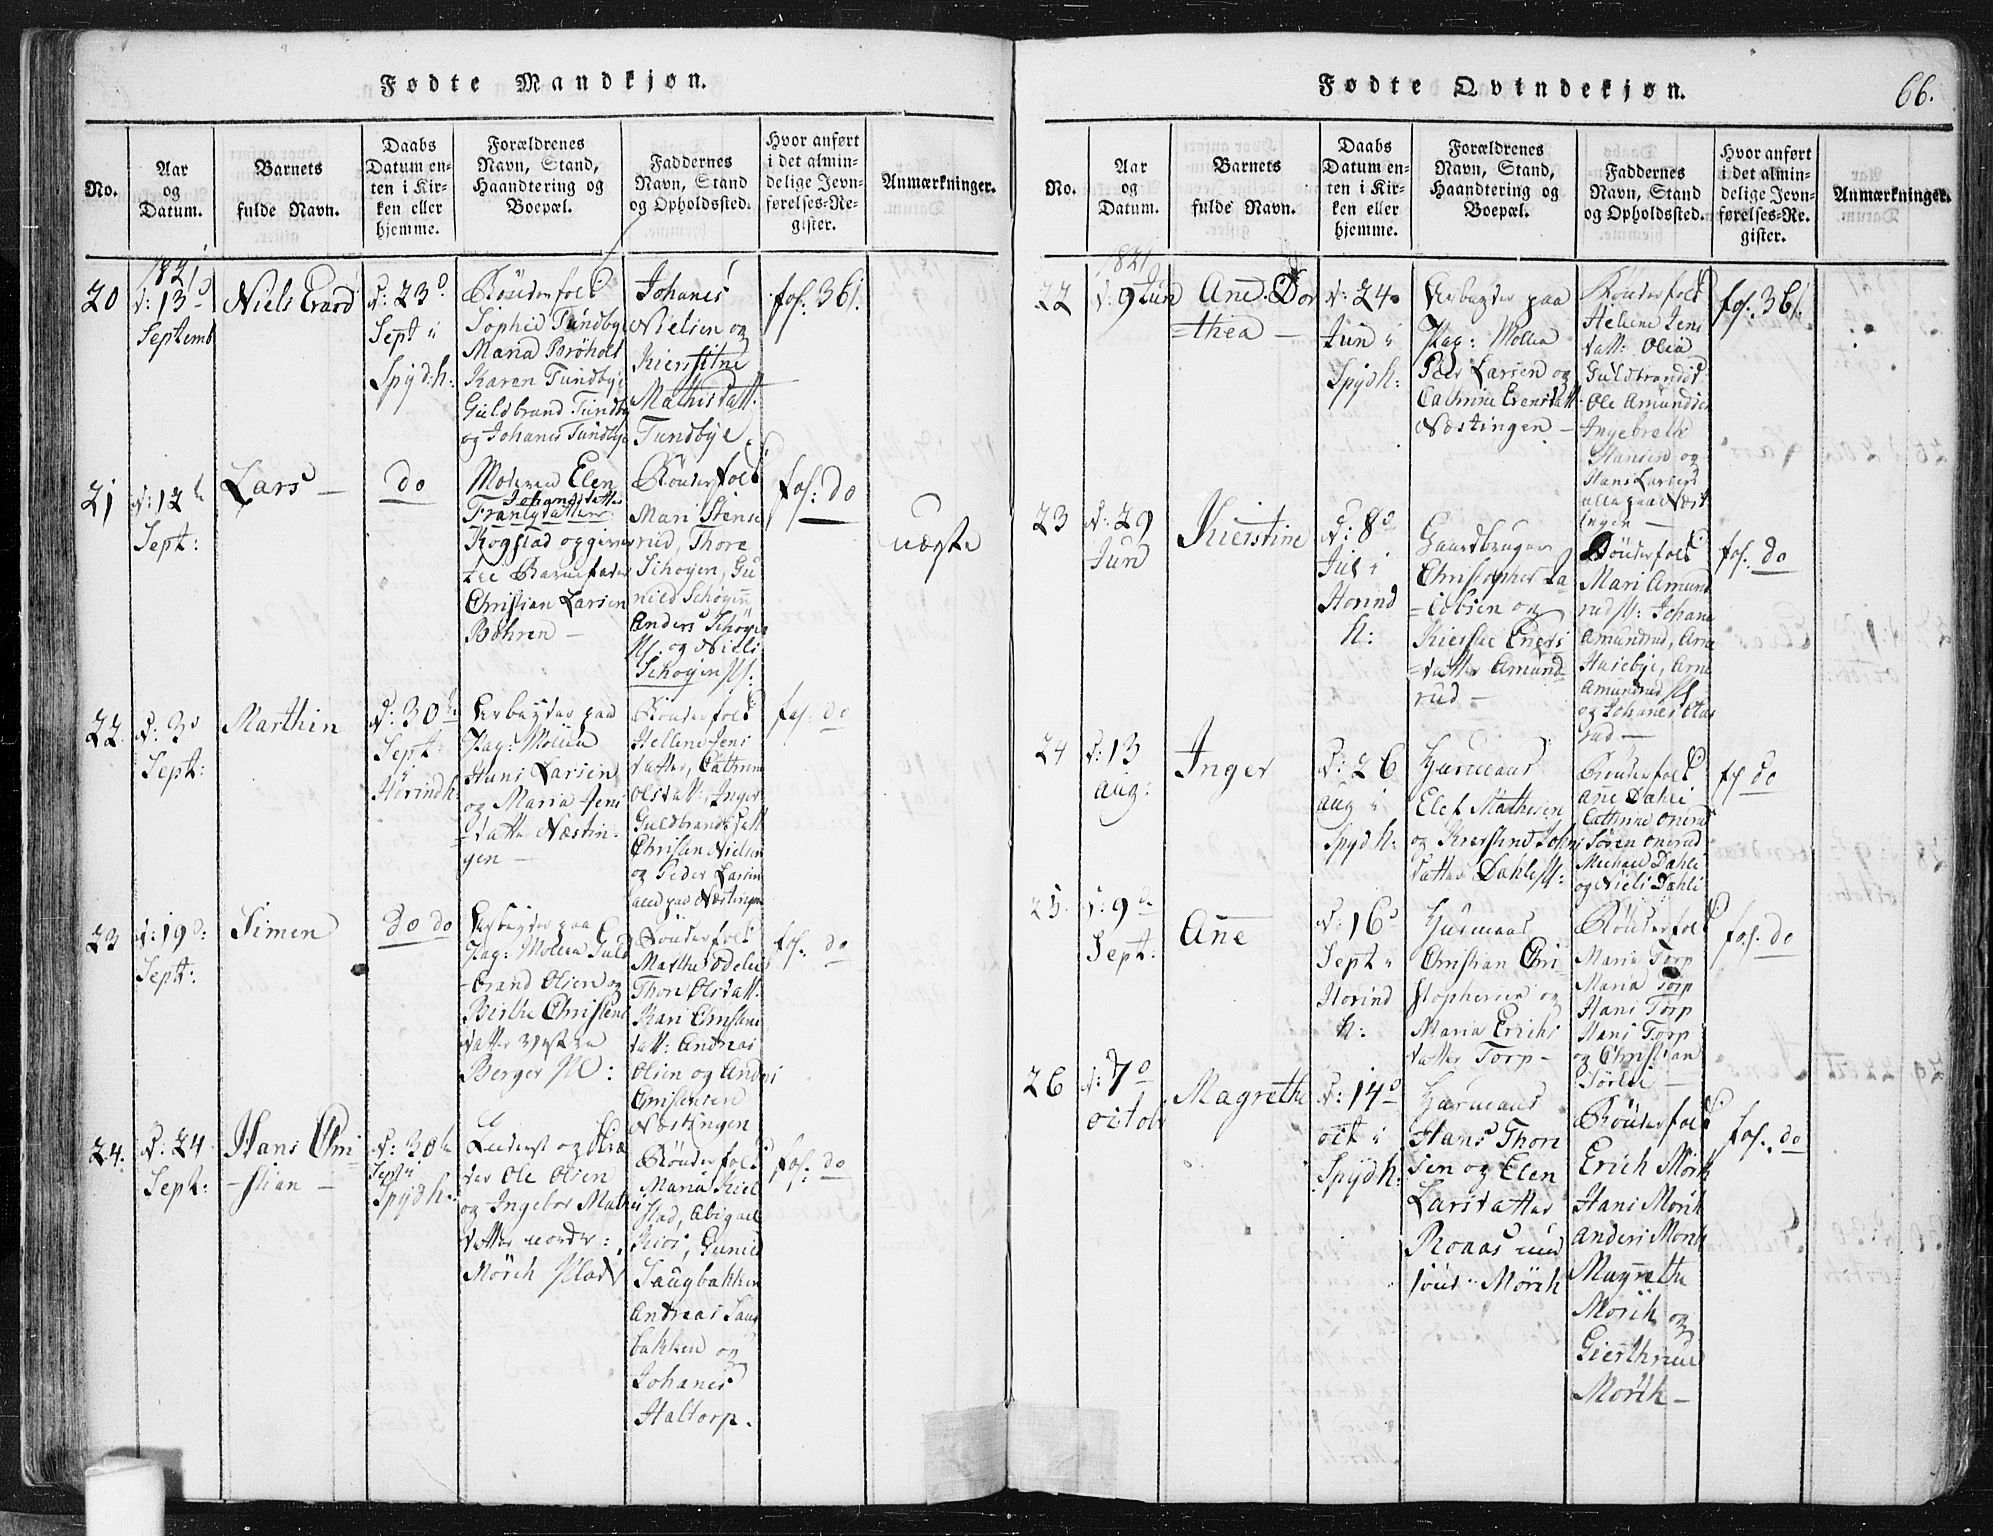 Fødte Mandkjøn.
No.
Aar
og
Datum.
Barnets
fulde Navn.
Daabs
Datum en-
ten i Kir-
ken eller
hjemme.
Forældrenes
Navn, Stand,
Haandtering og
Boepæl.
Faddernes
Navn, Stand
og Opholdssted.
Hvor anført
i det almin-
delige Jevn-
førelses-Re-
gister.
Anmærkninger.
1821
20
d: 13d
Septemb
Niels Evard
d: 23d
Sept i
Spydh:
Bönderfolk
Sophie Tundbye
Maria Bröholt
Karen Tundbye
Guldbrand Tundby
og Johanes Tundbye
Johanes
Nielsen og
Kierstine
Mathisdatt:
Tundbye
fol. 361.
21
d: 12
Sept:
Lars —
do
Moderen Elen
Johansdatter
Frantzdatter
Kogstad opgiver
Christian Larsen
Böhren —
Bönderfolk
Mari Stens
rud, Thore
Schøyen, Gu
nild Schøyen
Anders Schøyen
Pl. og Niels
Schøyen Pl:
fol: do
uægte
22
d: 3d
Sept:
Marthin
d: 30
Sept
Hörindh:
Verbøyder paa
Hans Larsen
og Maria Jens
datter Næstin-
gen —
Bönderfolk
Hellene Jens
datter, Cathrine
Olsdatt: Inger
Guldbrandsdatt
Christen Nielsen
og Peder Larsen
alle paa Næstingen
fol: do
23
d: 19d:
Sept:
Simen
do do
Guld
-brand Olsen og
Birthe Christens
datter
Berger Pl:
Bönderfolk
Martha Ødelie
Thore Olsdatt:
Kari Christens
datt: Andreas
Olsen og Andr
Christensen
Næstingen
fol: do
24.
d: 24
Sept:
Hans Chri
-stian —
d: 30
Sept i
Spydh:
Leilænd og
der Ole Olsen
og Ingebor Mathis
datter norder:
Mörch Plads
Bönderfolk
Maria Kiel
stad, Abigael
Kios, Gunild
Saugbakken
Andreas Saug
bakken og
Johanes
Haltorp.
fol: do
Fødte Qvindekjøn.
66.
No.
Aar
og
Datum.
Barnets
fulde Navn.
Daabs
Datum en-
ten i Kir-
ken eller
hjemme.
Forældrenes
Navn, Stand,
Haandtering og
Boepæl.
Faddernes
Navn, Stand
og Opholdssted.
Hvor anført
i det almin-
delige Jevn-
førelses-Re-
gister.
Anmærkninger.
1821
22
d. 9 Jun
Ane Dor
=thea —
d: 24
Jun i
Spydh:
Peder Larsen og
Cathrine Evensdatt
Næstingen —
Bönderfolk
Helene Jens
datt: Olea
Guldbrandsd
Ole Amundsen
Ingebreth
Hansen og
Hans Larsen
alle paa Næst
ingen —
fol. 361.
23
d: 29
Jun
Kierstine
d: 8d
Jul i
Horind
h:
Gaardbruger
Christopher Ja-
-cobsen og
Kierstie Evers
=datter Amund
rud —
Bönderfolk
Mari Amund
rud Pl: Johane
Amundrud, Arne
Husebye, Arne
Amundrud Pl
og Johanes Stas
rud —
fol. do
24
d: 13
Aug:
Inger
d: 26
Aug i
Spydh:
Huusmand
Elef Mathesen
og Kierstine Johns
datter Dahle Pl:
Bönderfolk
Ane Dahli
Cathrine Onerud
Søren Onerud
Michael Dahli
og Niels Dahli
fol do
25
d: 9d
Sept:
Ane
d: 16d
Sept i
Horind
h:
Huusmand
Christian Chri-
stophersen og
Maria Erichs
datter Torp —
Bönderfolk
Maria Torp
Maria Torp
Hans Torp
Hans Torp
og Christian
Sørlie —
fol. do
26
d: 7d
Octob
Magrethe
d: 14d
Oct i
Spydh:
Huusmand
Hans Thore
sen og Elen
Larsdatter
Ronaas
Mörch
Bönderfolk
Erich Mörk
Hans Mörch
Anders Mörch
Magrethe
Mörch og
Gierthrud
Mörch —
fol. do